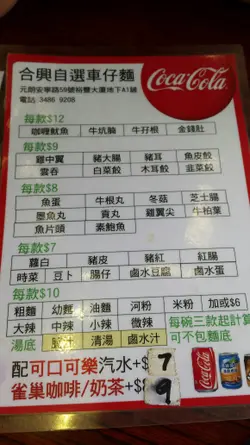 合興自選車仔麵
Coca-Cola
元朗安寧路59號裕豐大廈地下A1鋪
電話 3486 9208
每款$12
咖喱魷魚 牛坑腩 牛孖根 金錢肚
每款$9
雞中翼 豬大腸 豬耳 魚皮餃
雲吞 白菜餃 木耳餃 韮菜餃
每款$8
魚蛋 牛根丸 冬菇 芝士腸
墨魚丸 貢丸 雞翼尖 牛柏葉
魚片頭 素鮑魚
每款$7
蘿白 豬皮 豬紅 紅腸
時菜 豆卜 腸仔 鹵水豆腐 鹵水蛋
每款$10
粗麵 幼麵 油麵 河粉 米粉 加或$6
大辣 中辣 小辣 微辣
每碗三款起計算
可不包麵底
湯底 清湯 鹵水汁
配可口可樂汽水+$7
雀巢咖啡/奶茶+$9